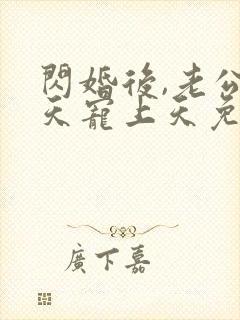 閃婚後,老公
天寵上天免
廣下嘉